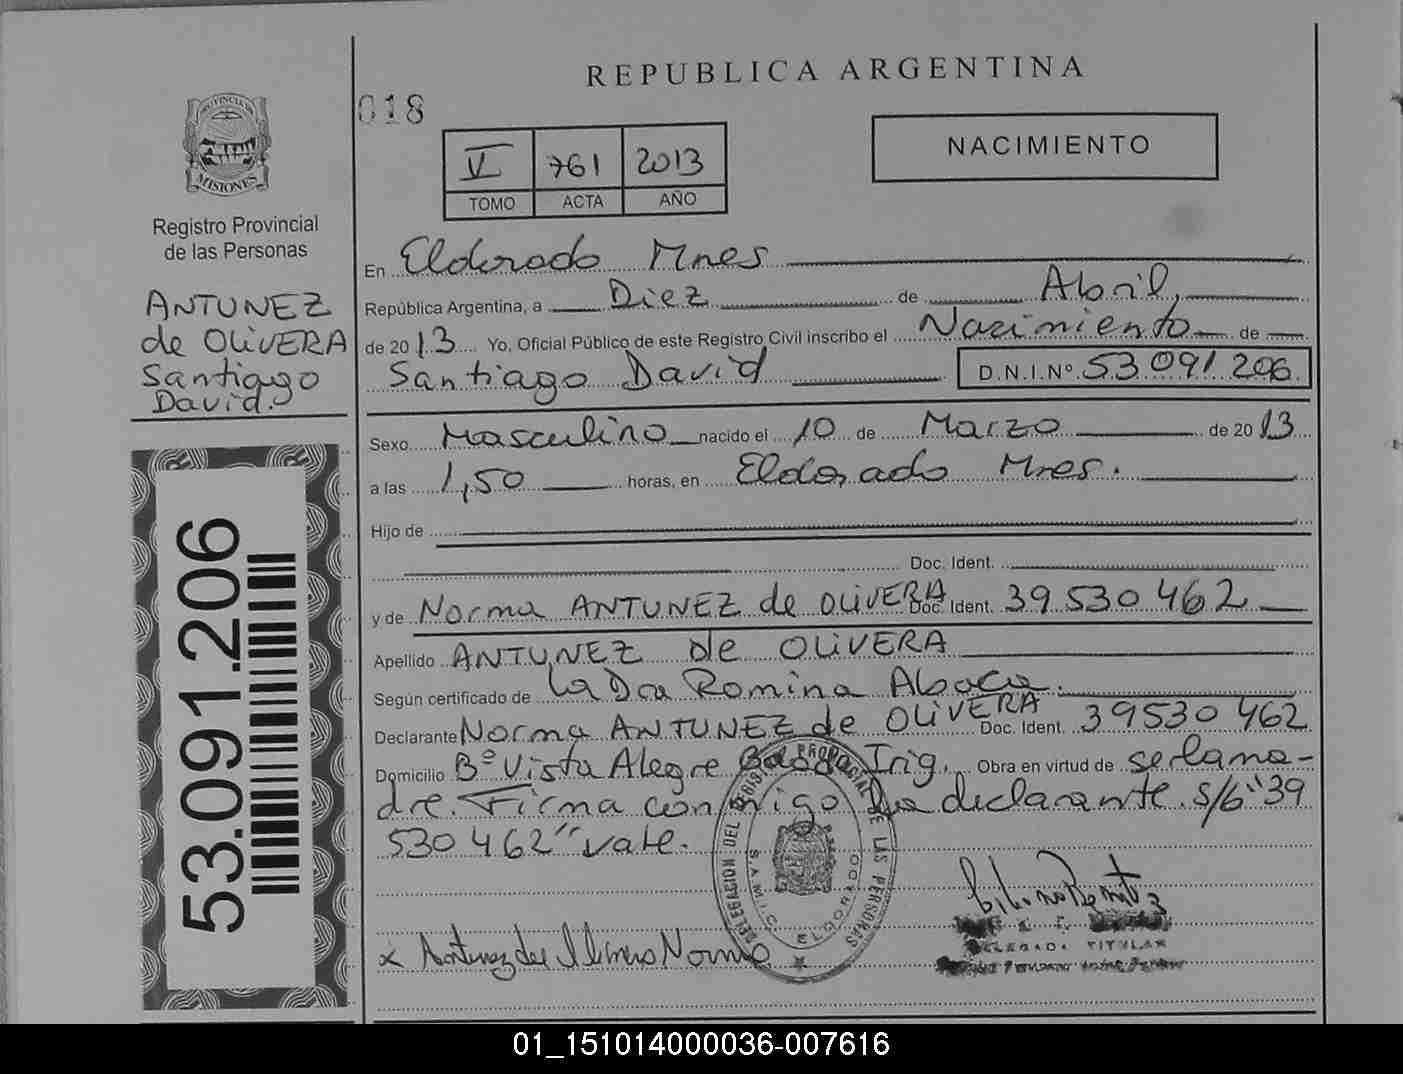 REPUBLICA ARGENTINA
018
PROVINCIA DE
MISIONES
Registro Provincial
de las Personas
V 761 2013
TOMO ACTA AÑO
NACIMIENTO
ANTUNEZ
de OLiVERA
Santiago
David.
53.091.206
En Eldorado Mnes
República Argentina, a Diez de Abril,
de 2013 Yo, Oficial Público de este Registro Civil inscribo el Nacimiento de
Santiago David D.N.I.Nº 53 091 206
Sexo Masculino nacido el 10 de Marzo de 2013
a las 1,50 horas, en Eldorado Mnes.
Hijo de
Doc. Ident.
y de Norma ANTUNEZ de OLiVERA Doc. Ident. 39 530 462
Apellido ANTUNEZ de OLiVERA
Según certificado de la Dra Romina
Declarante Norma ANTUNEZ de OLiVERA Doc. Ident. 39530 462
Domicilio Bº Vista Alegre Irig. Obra en virtud de ser la ma-
dre. Firma conmigo la declarante. s/b "39
530 462" vale.
DELEGACION DEL REGISTRO PROVINCIAL DE LAS PERSONAS
ELDORADO
x Antunez de Norma
DELEGADA TITULAR
01_151014000036-007616